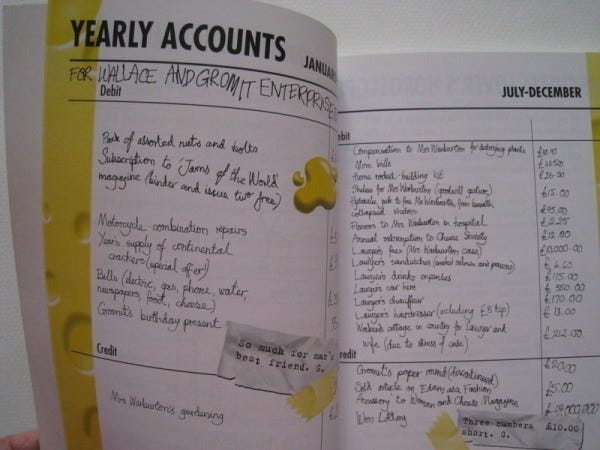 YEARLY ACCOUNTS
JANUARY
FOR WALLACE AND GROMIT ENTERPRISES
Debit
Pack of assorted nuts and bolts
Subscription to 'Jams of the World'
magazine (binder and issue two free)
Motorcycle combination repairs
Years supply of continental
crackers (special offer)
Bills (electric, gas, phone, water,
newspapers, food, cheese)
Gromit's birthday present
So much for man's
best friend. G.
Credit
Mrs Warburton's gardening
JULY-DECEMBER
ebit
Compensation to Mrs Warburton for damaging plants
More bills
Home rocket-building kit
Shelves for Mrs Warburton (goodwill gesture) £15.00
Hydraulic jack to free Mrs Warburton from beneath
collapsed shelves £95.00
Flowers to Mrs Warburton in hospital £2.25
Annual subscription to Cheese Society £12.00
Lawyer's fees (Mrs Warburton case) £10,000.00
Lawyer's sandwiches (smoked salmon and prawns) £6.60
Lawyer's drinks expenses £115.00
Lawyer's car hire £550.00
Lawyer's chauffeur £170.00
Lawyer's hairdresser (including £8 tip) £18.00
Weekend cottage in country for lawyer and
wife (due to stress of case) £212.00
redit
Gromit's paper round (discontinued) £20.00
Sold article on Edam as a Fashion
Accessory to Woman and Cheese Magazine £5.00
Won Lottery £19,000,000
Three numbers
short. G.
£10.00